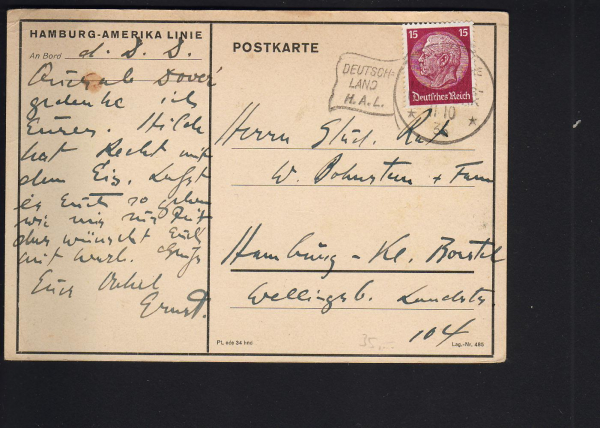 HAMBURG-AMERIKA LINIE
An Bord d. D. D.
Dover
gedenke ich
Eurer.
hat Recht mit
dem Eis. Lasst
es Euch so gehen
wie mir
das wünscht Euch
mit herzl. Gruß
Euer Onkel
Ernst.
POSTKARTE
DEUTSCH-
LAND
H.A.L.
15 15
Deutsches Reich
10
Herrn Stud. Rat
W. Bohnstein + Fam
Hamburg - Kl. Borstel
Wellingsb. Landstr.
104
35
Pt. ede 34 hnd
Lag.-Nr. 485